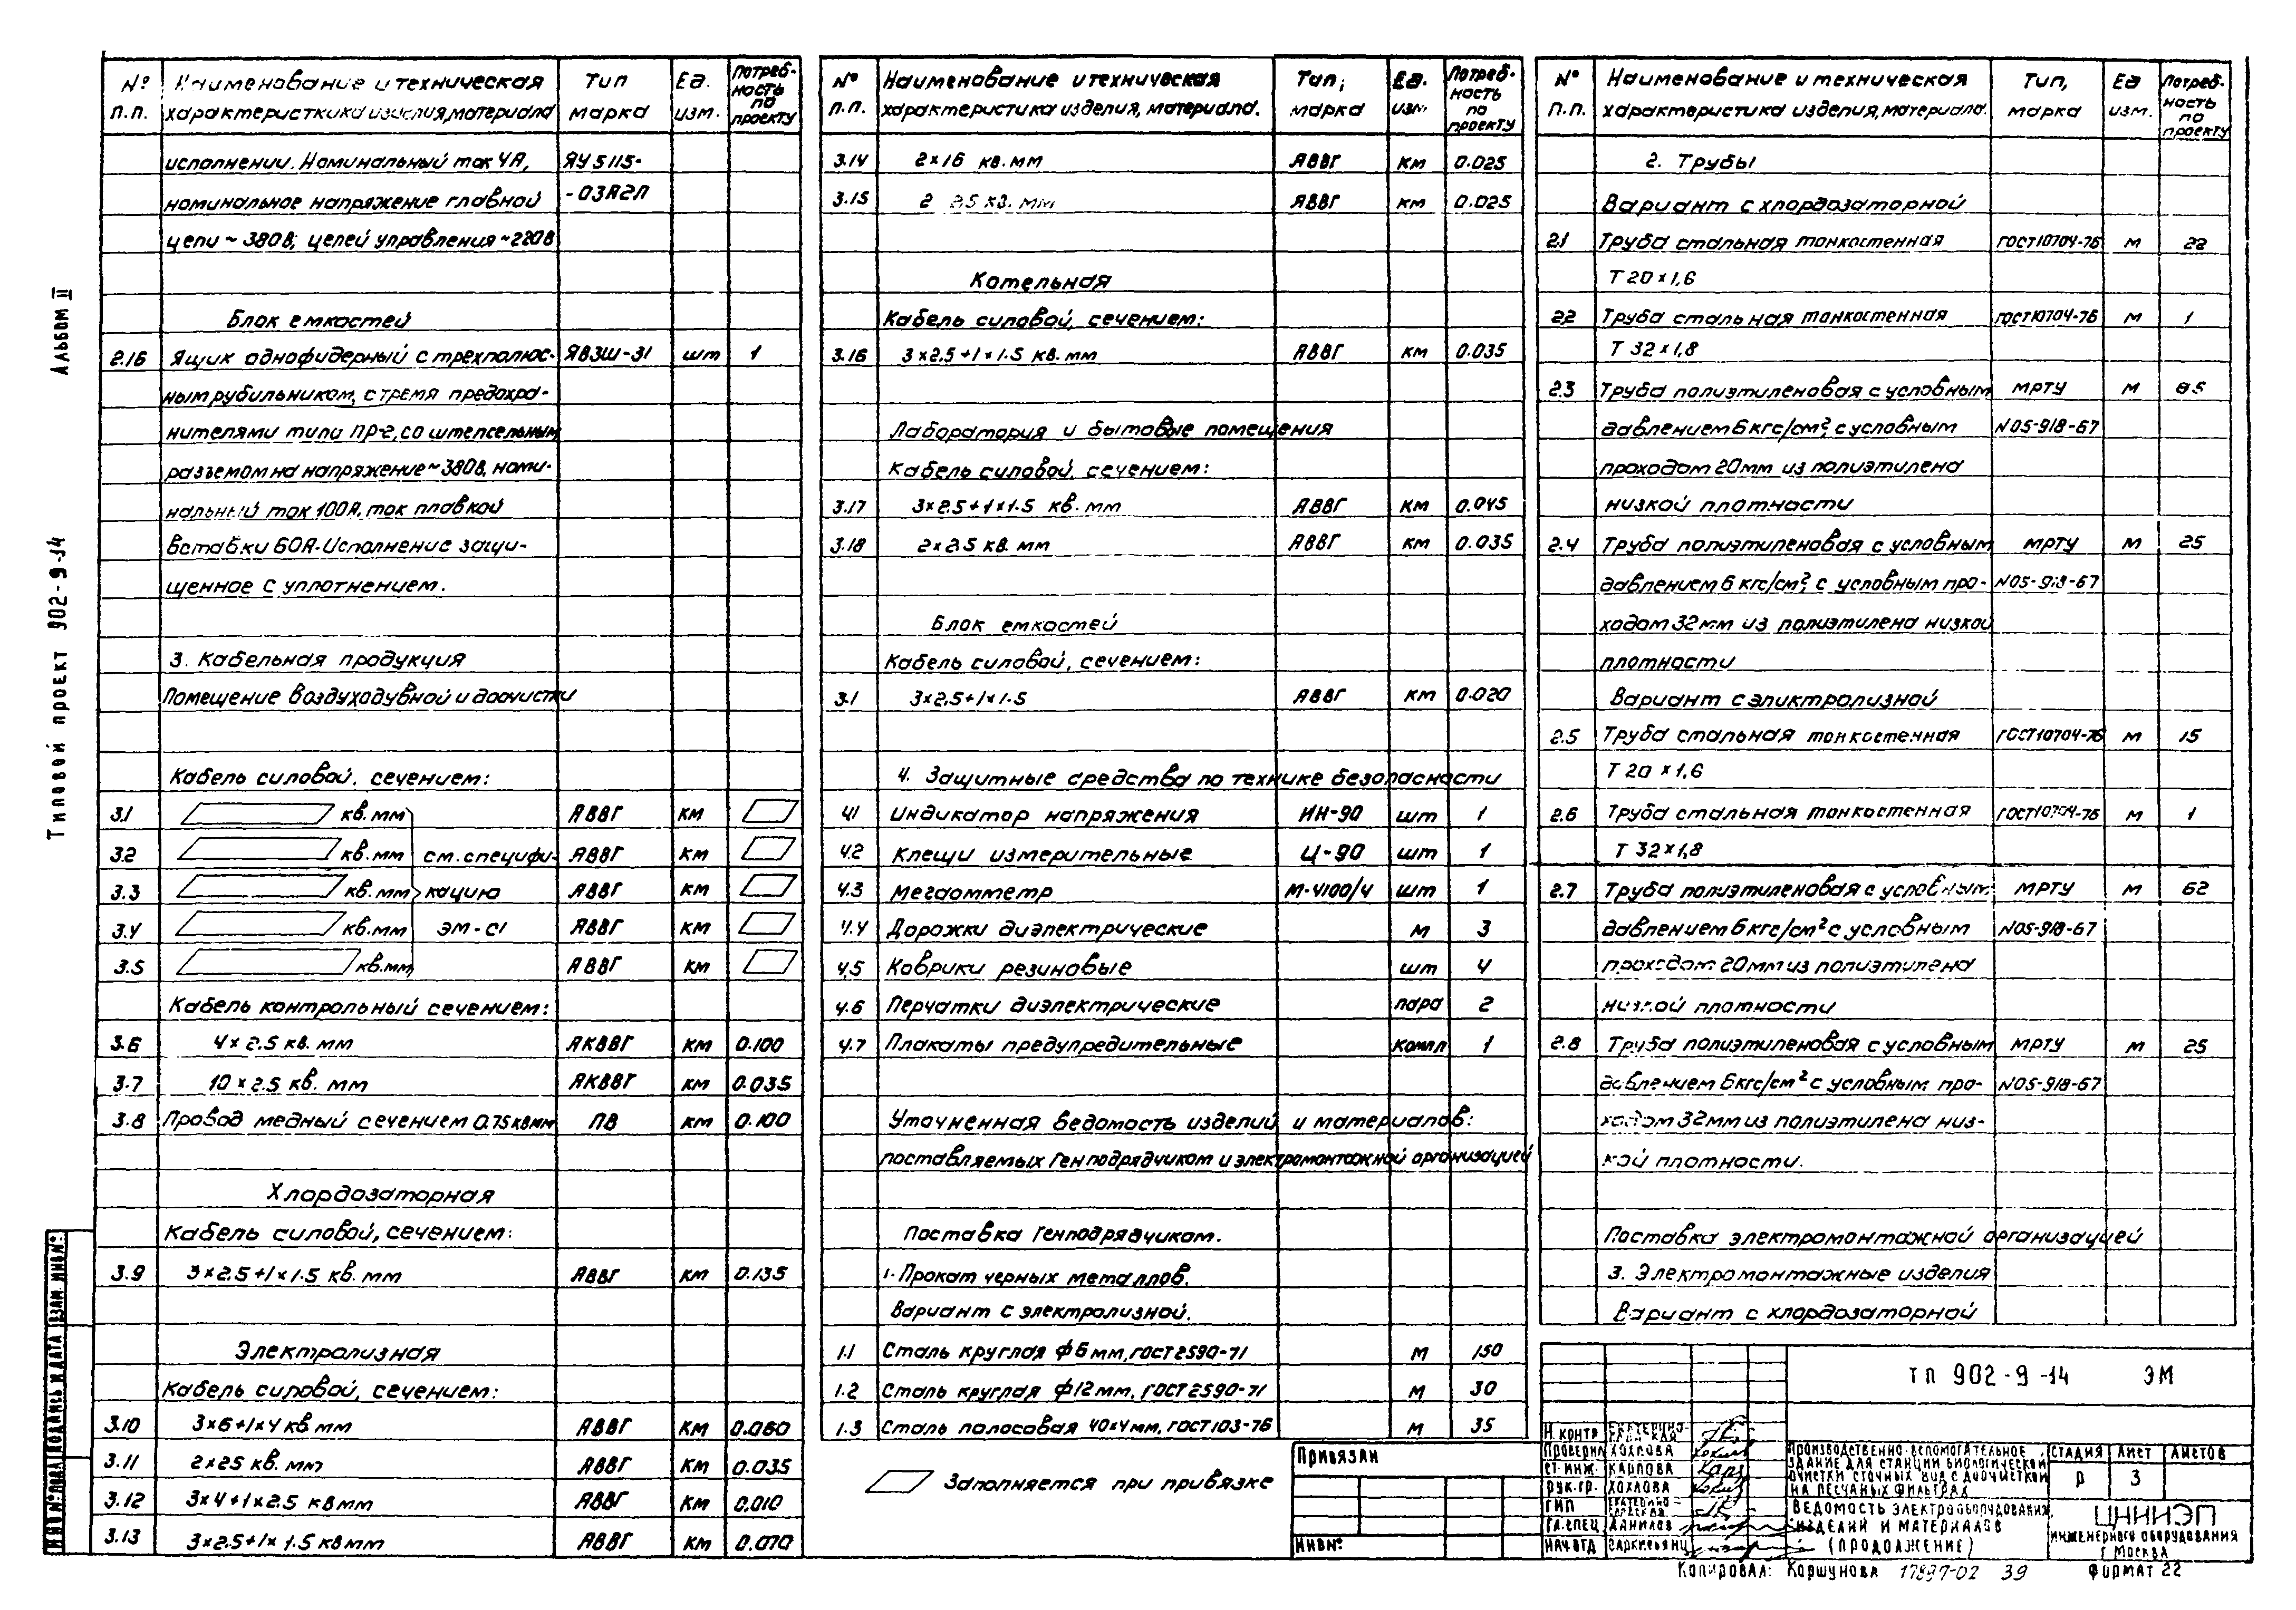 Альбом II
Типовой проект 902-9-14
№ п.п. Наименование и техническая характеристика изделия, материала Тип марка Ед. изм. Потребность по проекту
исполнении. Номинальный ток 4А, ЯУ5115-
номинальное напряжение главной -03А2П
цепи ~ 380В; цепей управления ~220В
Блок емкостей
2.16 Ящик однофидерный с трехполюс- ЯВЗШ-31 шт 1
ным рубильником, с тремя предохра-
нителями типа ПР-2, со штепсельным
разъемом на напряжение ~380В, номи-
нальный ток 100А, ток плавкой
вставки 60А. Исполнение защи-
щенное с уплотнением.
3. Кабельная продукция
Помещение воздуходувной и доочистки
Кабель силовой. сечением:
3.1 кв.мм АВВГ км
3.2 кв.мм см. специфи- АВВГ км
3.3 кв.мм кацию АВВГ км
3.4 кв.мм ЭМ-С1 АВВГ км
3.5 кв.мм АВВГ км
Кабель контрольный сечением:
3.6 4×2.5 кв. мм АКВВГ км 0.100
3.7 10×2.5 кв. мм АКВВГ км 0.035
3.8 Провод медный сечением 0.75 кв мм ПВ км 0.100
Хлордозаторная
Кабель силовой, сечением:
3.9 3×2.5+1×1.5 кв. мм АВВГ км 0.135
Электролизная
Кабель силовой, сечением:
3.10 3×6+1×4 кв мм АВВГ км 0.060
3.11 2×25 кв. мм АВВГ км 0.035
3.12 3×4+1×2.5 кв мм АВВГ км 0.010
3.13 3×2.5+1×1.5 кв мм АВВГ км 0.070
№ п.п. Наименование и техническая характеристика изделия, материала. Тип, марка Ед. изм. Потребность по проекту
3.14 2×16 кв. мм АВВГ км 0.025
3.15 2 25 кв. мм АВВГ км 0.025
Котельная
Кабель силовой, сечением:
3.16 3×2.5+1×1.5 кв. мм АВВГ км 0.035
Лаборатория и бытовые помещения
Кабель силовой. сечением:
3.17 3×2.5+1×1.5 кв. мм АВВГ км 0.045
3.18 2×2.5 кв. мм АВВГ км 0.035
Блок емкостей
Кабель силовой, сечением:
3.1 3×2.5+1×1.5 АВВГ км 0.020
4. Защитные средства по технике безопасности
4.1 Индикатор напряжения ИН-90 шт 1
4.2 Клещи измерительные Ц-90 шт 1
4.3 Мегаомметр М-4100/4 шт 1
4.4 Дорожки диэлектрические м 3
4.5 Коврики резиновые шт 4
4.6 Перчатки диэлектрические пара 2
4.7 Плакаты предупредительные компл 1
Уточненная ведомость изделий и материалов:
поставляемых генподрядчиком и электромонтажной организацией
Поставка генподрядчиком.
1. Прокат черных металлов.
Вариант с электролизной.
1.1 Сталь круглая ф6мм, ГОСТ 2590-71 м 150
1.2 Сталь круглая ф12мм, ГОСТ 2590-71 м 30
1.3 Сталь полосовая 40×4мм, ГОСТ 103-76 м 35
Заполняется при привязке
№ п.п. Наименование и техническая характеристика изделия, материала. Тип, марка Ед изм. Потребность по проекту
2. Трубы
Вариант с хлордозаторной
2.1 Труба стальная тонкостенная ГОСТ10704-76 м 22
Т 20×1,6
2.2 Труба стальная тонкостенная ГОСТ10704-76 м 1
Т 32×1,8
2.3 Труба полиэтиленовая с условным МРТУ м
давлением 6кгс/см², с условным N05-918-67
проходом 20мм из полиэтилена
низкой плотности
2.4 Труба полиэтиленовая с условным МРТУ м 25
давлением 6 кгс/см², с условным про- N05-918-67
ходом 32мм из полиэтилена низкой
плотности
Вариант с эликтролизной
2.5 Труба стальная тонкостенная ГОСТ10704-76 м 15
Т 20×1,6
2.6 Труба стальная тонкостенная ГОСТ10704-76 м 1
Т 32×1,8
2.7 Труба полиэтиленовая с условным МРТУ м 62
давлением 6кгс/см² с условным N05-918-67
проходом 20мм из полиэтилена
низкой плотности
2.8 Труба полиэтиленовая с условным МРТУ м 25
давлением 6кгс/см² с условным про- N05-918-67
ходом 32мм из полиэтилена низ-
кой плотности.
Поставка электромонтажной организацией
3. Электромонтажные изделия
Вариант с хлордозаторной
Инв № подл Подпись и дата Взам. инв №
Привязан
Инв №
ТП 902-9-14 ЭМ
Н. контр
Проверил Хохлова
Ст. инж. Карпова
Рук. гр. Хохлова
ГИП
Гл. спец Данилов
Нач отд
Производственно-вспомогательное
здание для станции биологической
очистки сточных вод с доочисткой
на песчаных фильтрах
Стадия Лист Листов
Р 3
Ведомость электрооборудования
изделий и материалов
(продолжение)
ЦНИИЭП
инженерного оборудования
г Москва
Копировал: Коршунова 17897-02 39 Формат 22